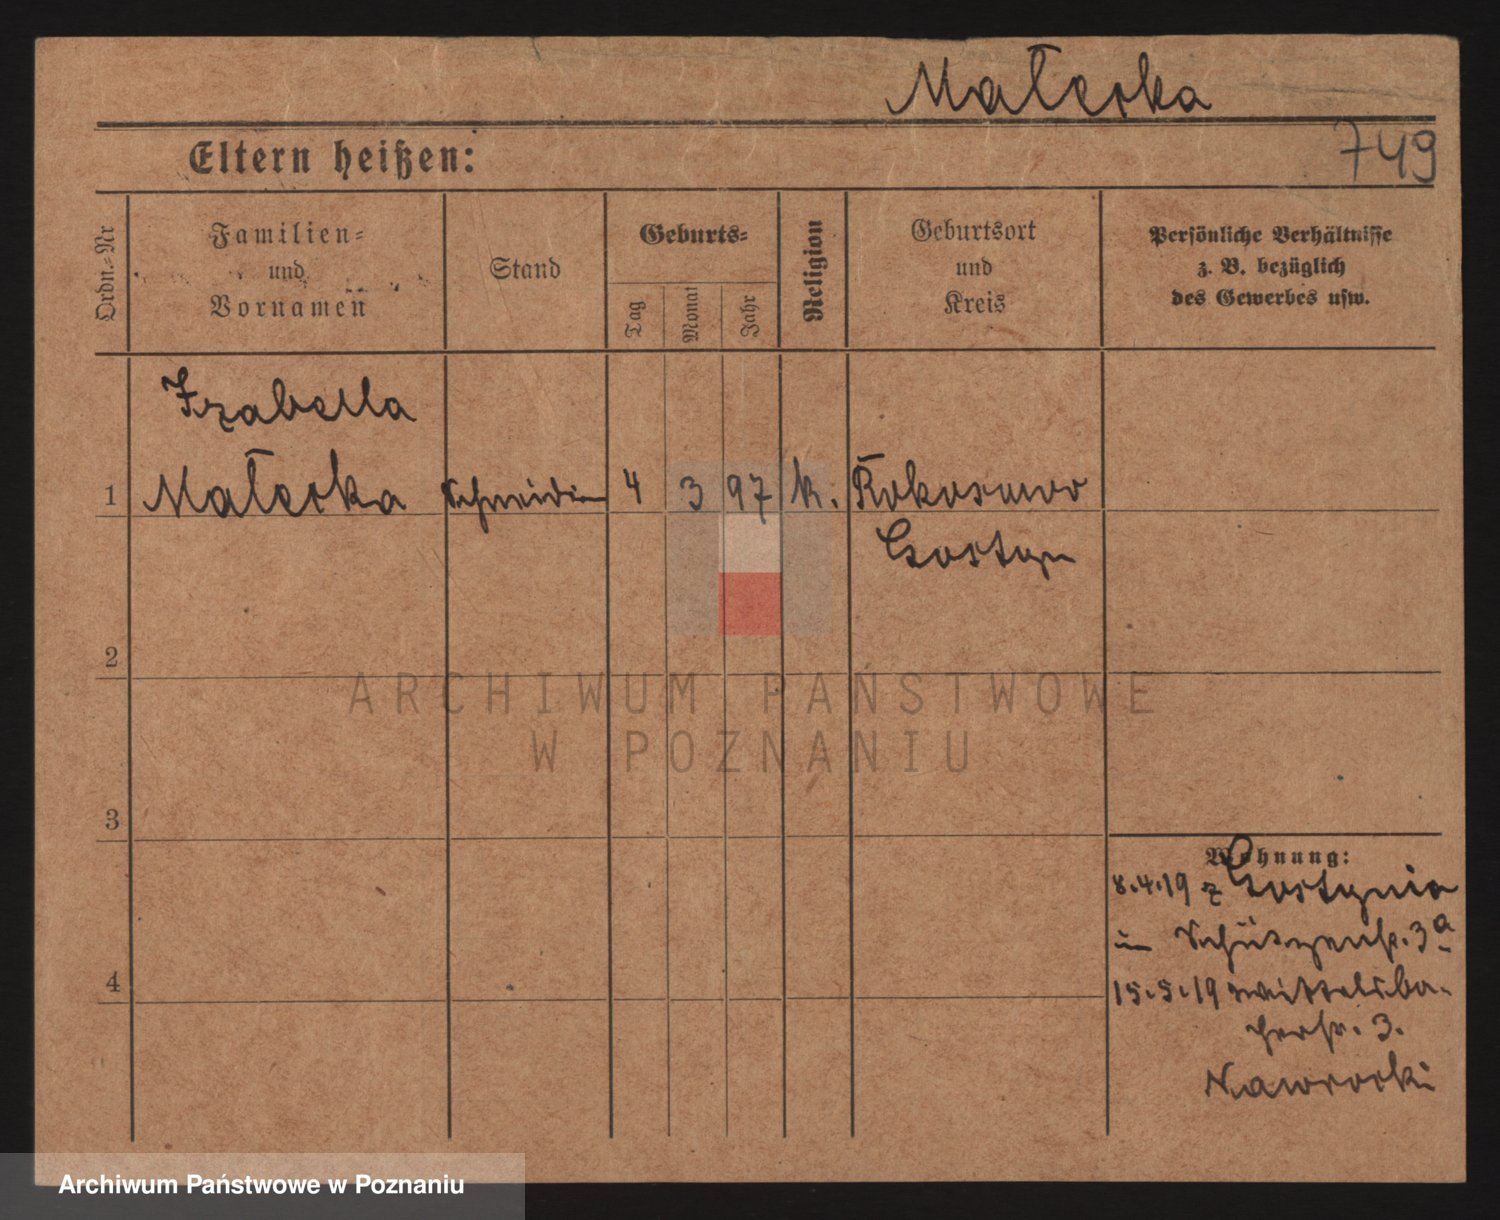 Małecka
749
Eltern heißen:
Ordn.-Nr
Familien-
und
Vornamen
Stand
Geburts-
Tag
Monat
Jahr
Religion
Geburtsort
und
Kreis
Persönliche Verhältnisse
z. B. bezüglich
des Gewerbes usw.
Izabella
1 Małecka Schneiderin 4 3 97 k. Rokosowo
Gostyn
2
3
4
Wohnung:
8.4.19 z Gostynia
in Schützenstr. 3a
15.5.19 Wittelsba-
cherstr. 3.
Nawrocki
ARCHIWUM PAŃSTWOWE
W POZNANIU
Archiwum Państwowe w Poznaniu